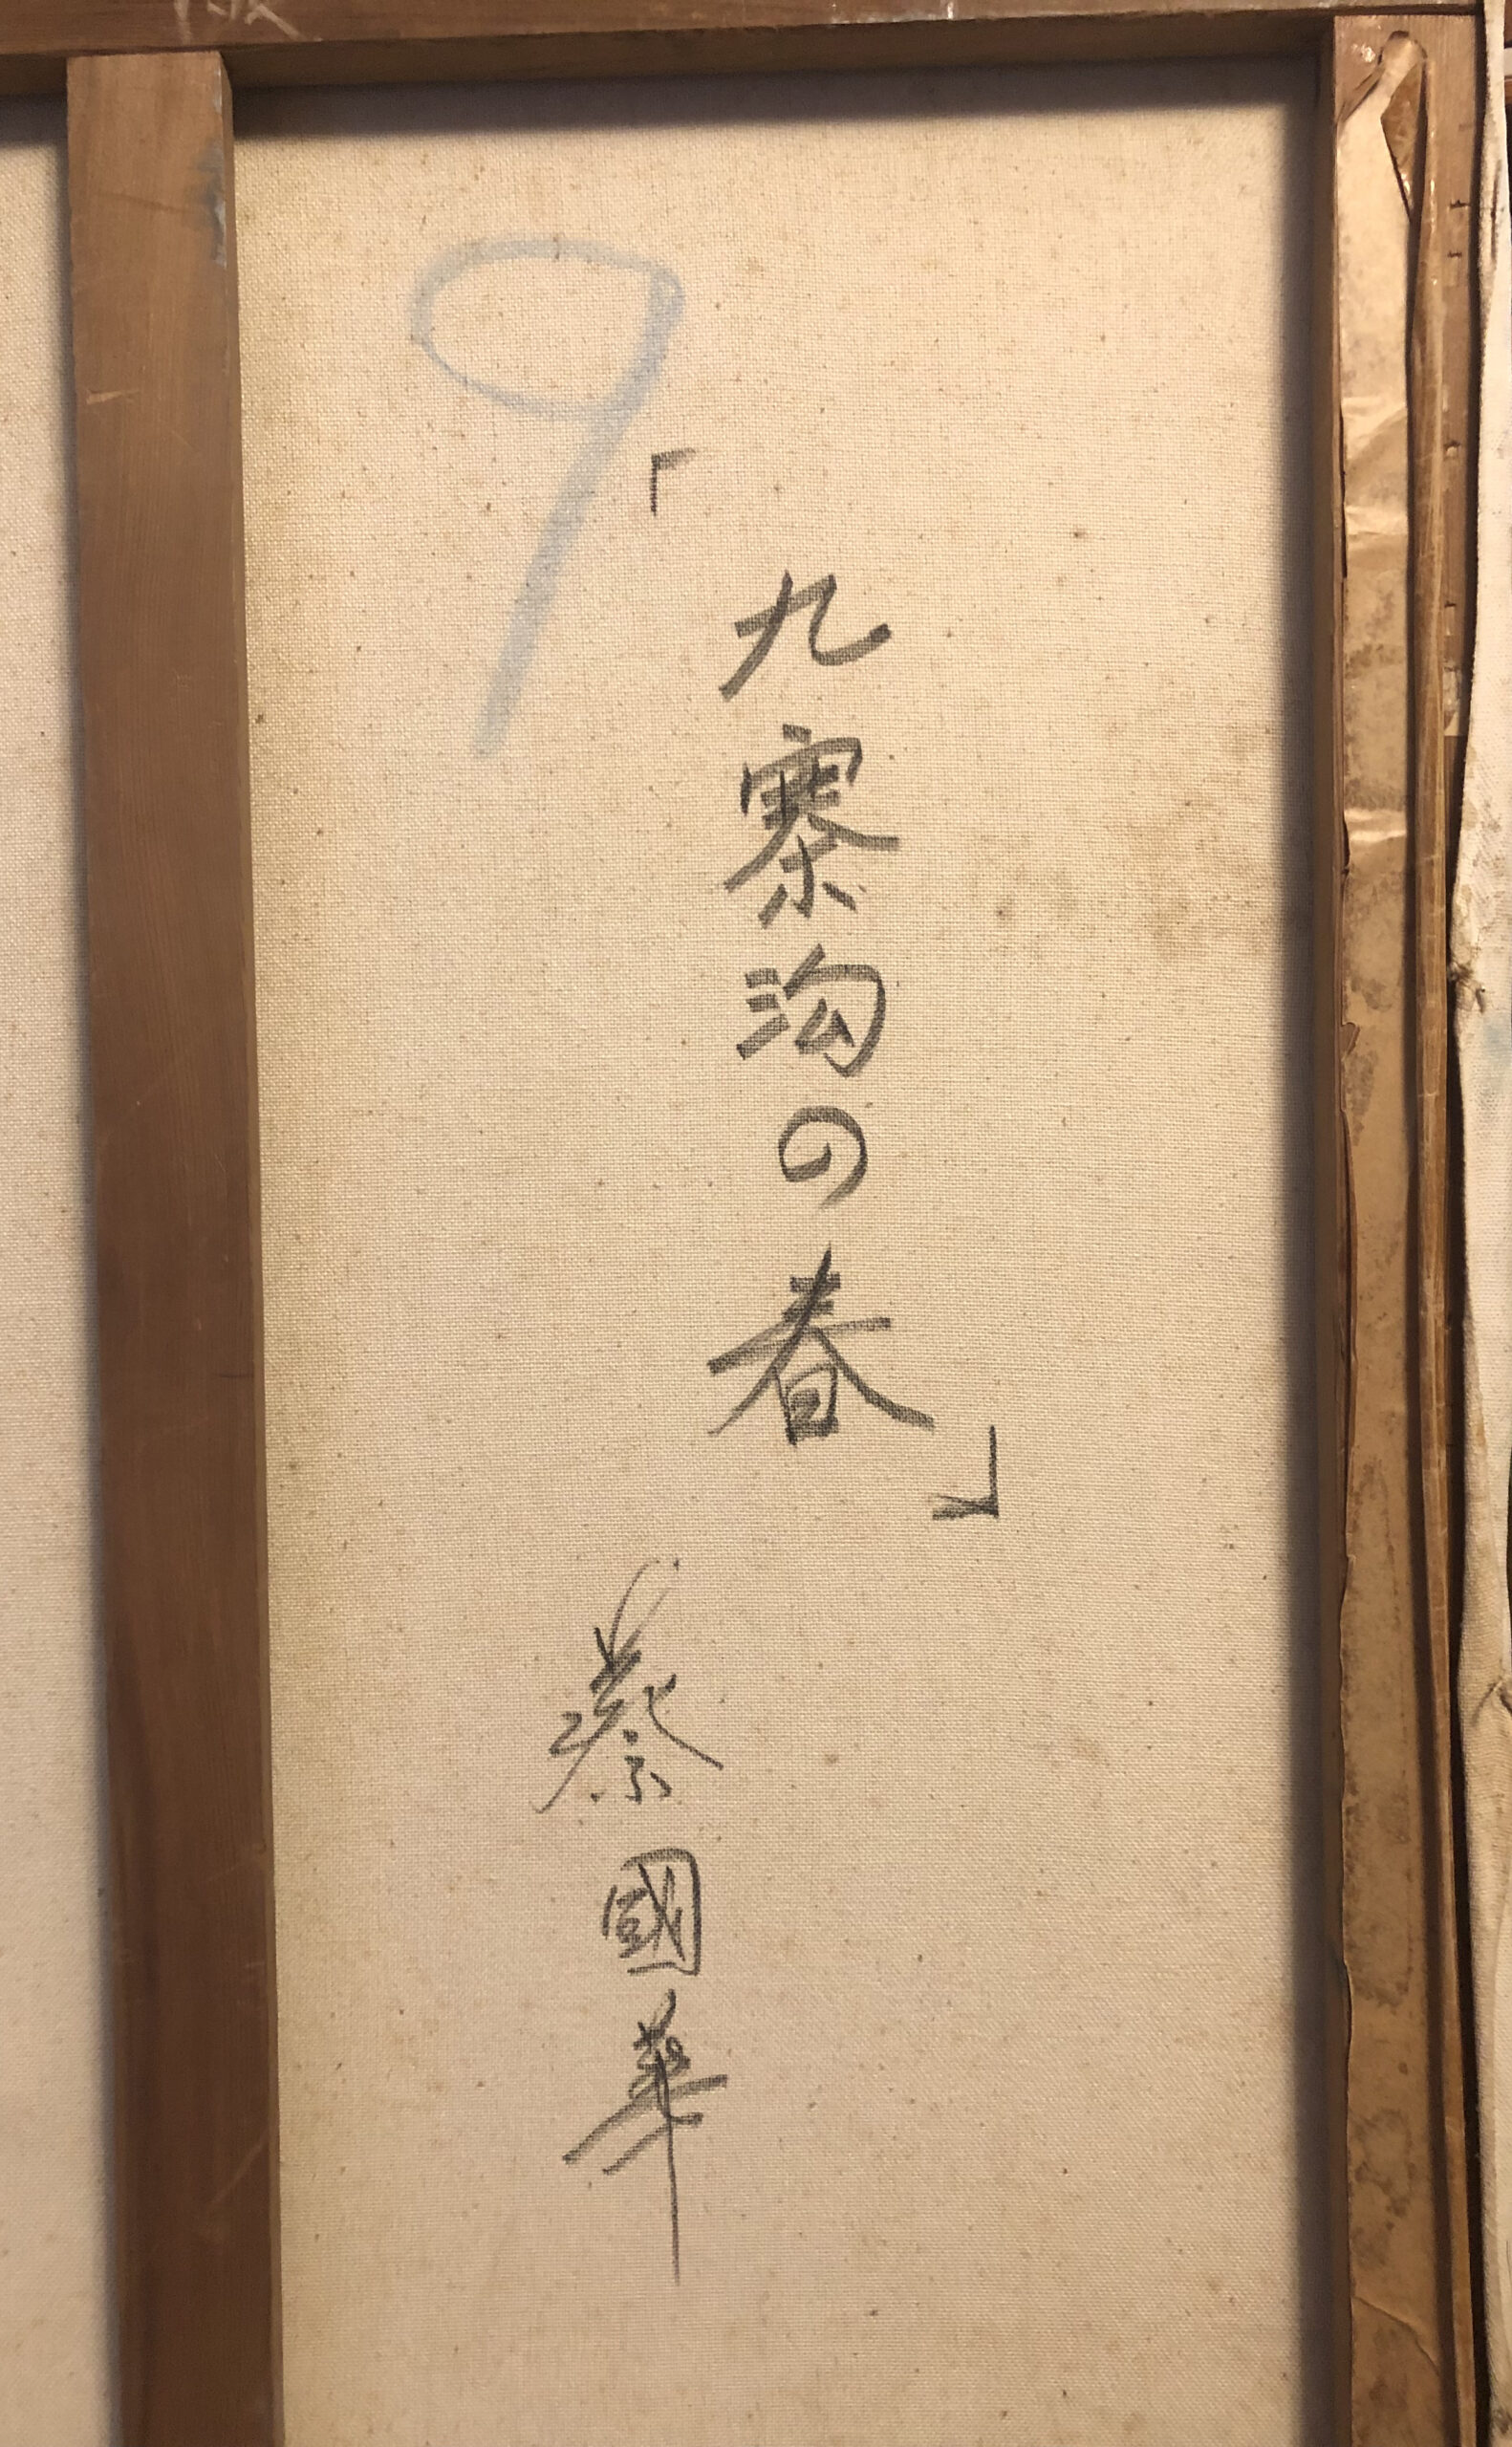 9
「九寨沟の春」
蔡國華